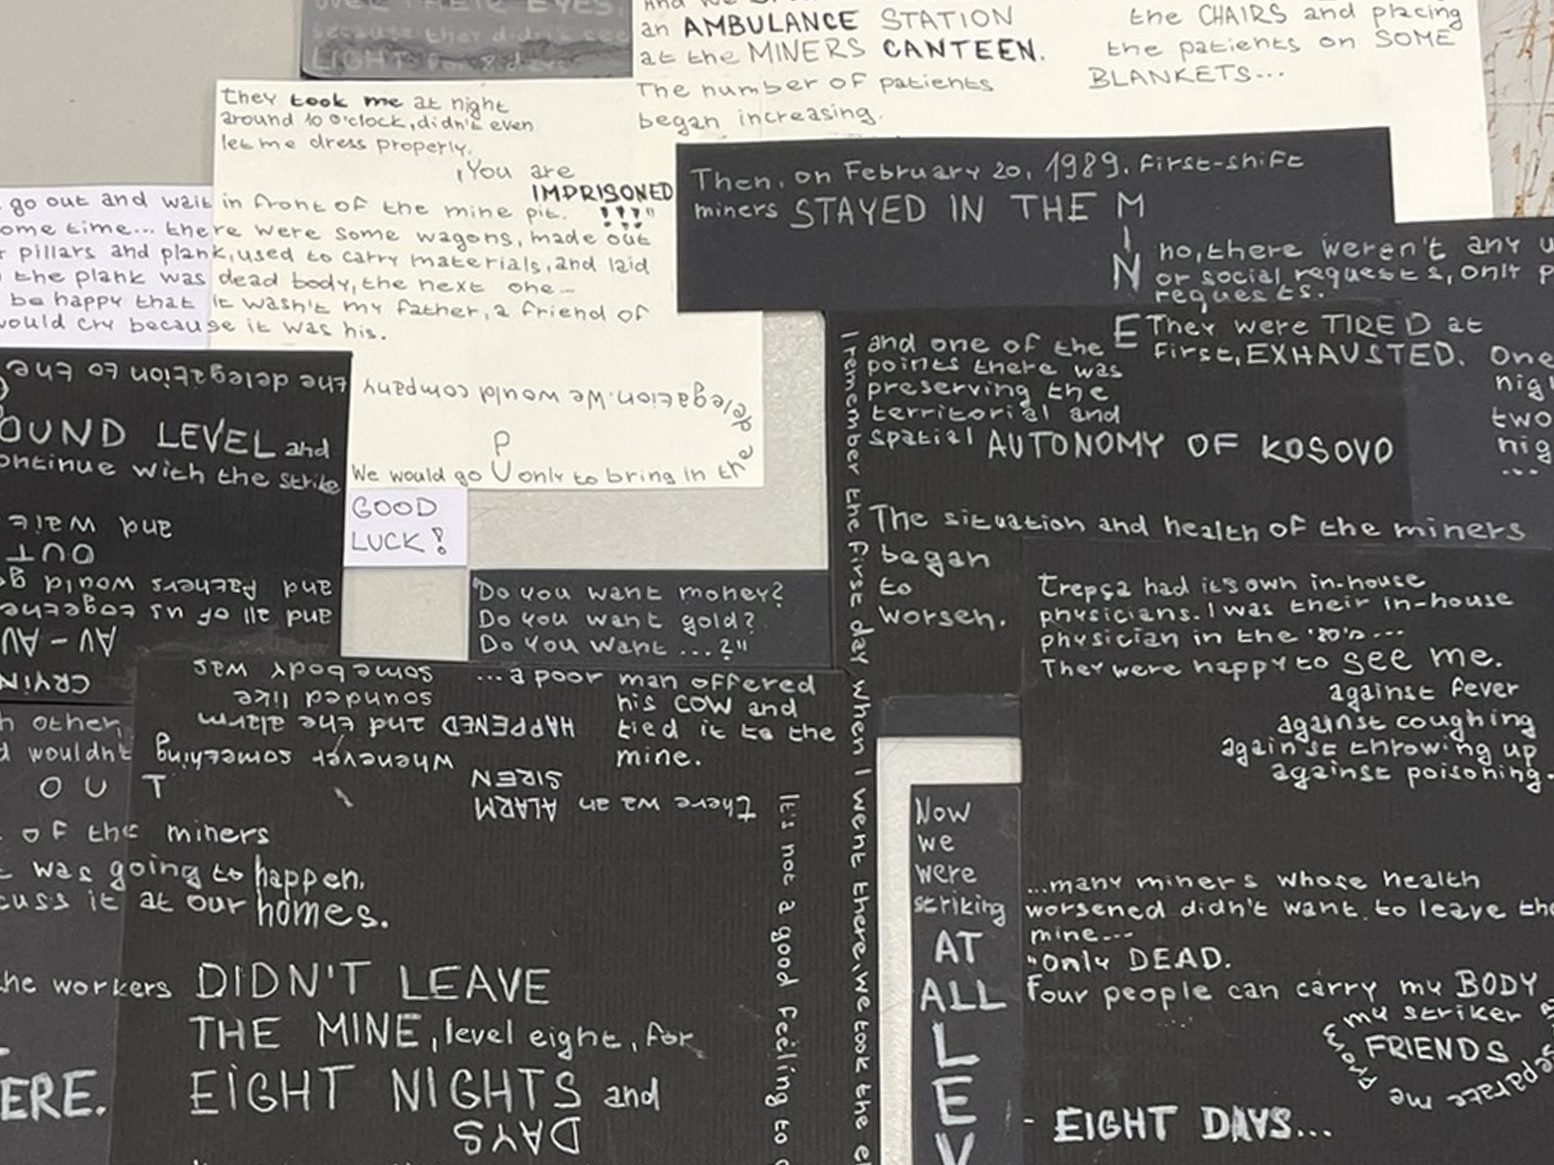 OVER THEIR EYES.
because they didn't see
LIGHT for 8 days
an AMBULANCE STATION
at the MINERS CANTEEN.
The number of patients
began increasing.
the CHAIRS and placing
the patients on SOME
BLANKETS...
they took me at night
around 10 o'clock, didn't even
let me dress properly.
"You are
IMPRISONED
!!!"
go out and wait in front of the mine pit.
ome time... there were some wagons, made out
pillars and plank, used to carry materials, and laid
the plank was dead body, the next one...
be happy that it wasn't my father, a friend of
would cry because it was his.
Then, on February 20, 1989, first-shift
miners STAYED IN THE M
I
N
E
no, there weren't any u
or social requests, only p
requests.
They were TIRED at
first, EXHAUSTED.
One
nig
two
nig
...
and one of the
points there was
preserving the
territorial and
spatial AUTONOMY OF KOSOVO
The situation and health of the miners
began
to
worsen.
I remember the first day when I went there, we took the el
the delegation to the
OUND LEVEL and
ontinue with the strike
We would go UP only to bring in the delegation. We would company
GOOD
LUCK!
and wait
OUT
and fathers would g
and all of us togethe
AU - AU
CRYIN
"Do you want money?
Do you want gold?
Do you want ...?"
...a poor man offered
his COW and
tied it to the
mine.
there wa an ALARM
SIREN
whenever something
HAPPENED and the alarm
sounded like
somebody was
trepça had it's own in-house
physicians. I was their in-house
physician in the '80's...
They were happy to see me.
against fever
against coughing
against throwing up
against poisoning.
h other,
d wouldn't
O U T
of the miners
was going to happen,
cuss it at our homes.
It's not a good feeling to
Now
we
were
striking
AT
ALL
L
E
V
...many miners whose health
worsened didn't want to leave the
mine...
"Only DEAD.
Four people can carry my BODY
my striker
FRIENDS
separate me from
- EIGHT DAYS...
he workers DIDN'T LEAVE
THE MINE, level eight, for
EIGHT NIGHTS and
DAYS
ERE.